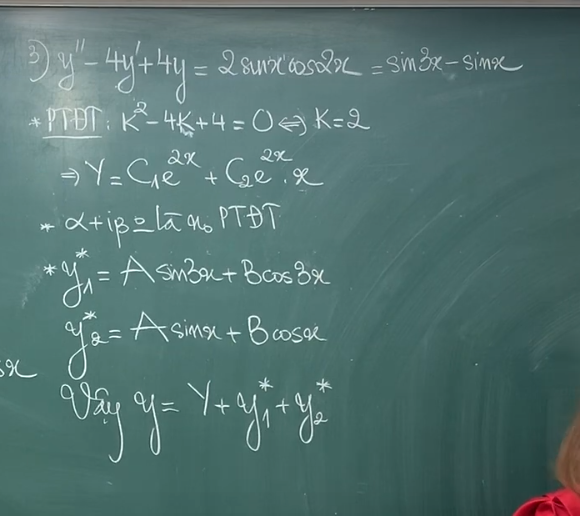 3) y'' - 4y' + 4y = 2sinx cos2x = sin3x - sinx
* PTĐT: K² - 4K + 4 = 0 ⇔ K = 2
⇒ Y = C₁e²ˣ + C₂e²ˣ . x
* α + iβ là n₀ PTĐT
* y₁* = A sin3x + B cos3x
y₂* = A sinx + B cosx
sx
Vậy y = Y + y₁* + y₂*